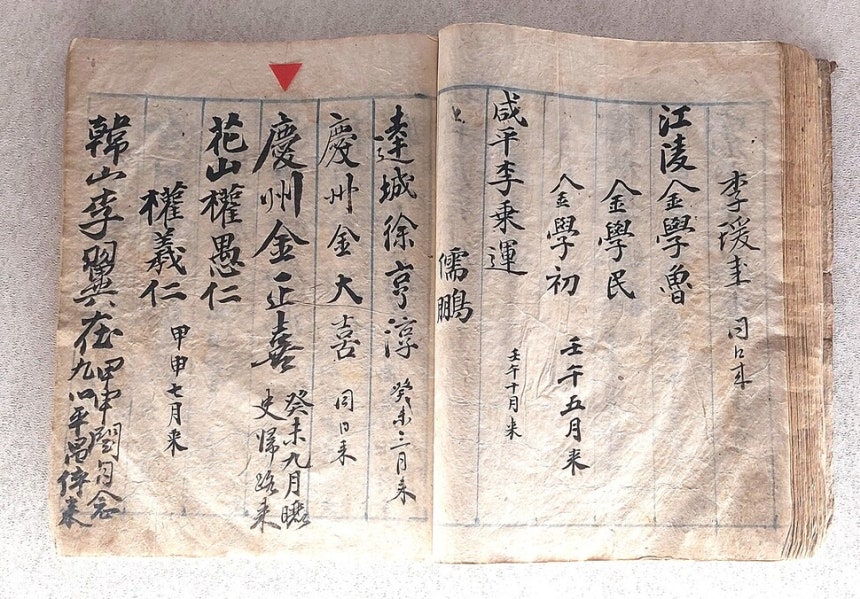 李瑗圭 同日来
江陵金學魯
金學民
金學初 壬午五月来
咸平李乗運 壬午十月来
上 儒鵬
達城徐亨淳 癸未三月来
慶州金大喜 同日来
慶州金正喜 癸未九月曬
史歸路来
花山權愚仁
權義仁 甲申七月来
韓山李翼在 甲申閏旬念